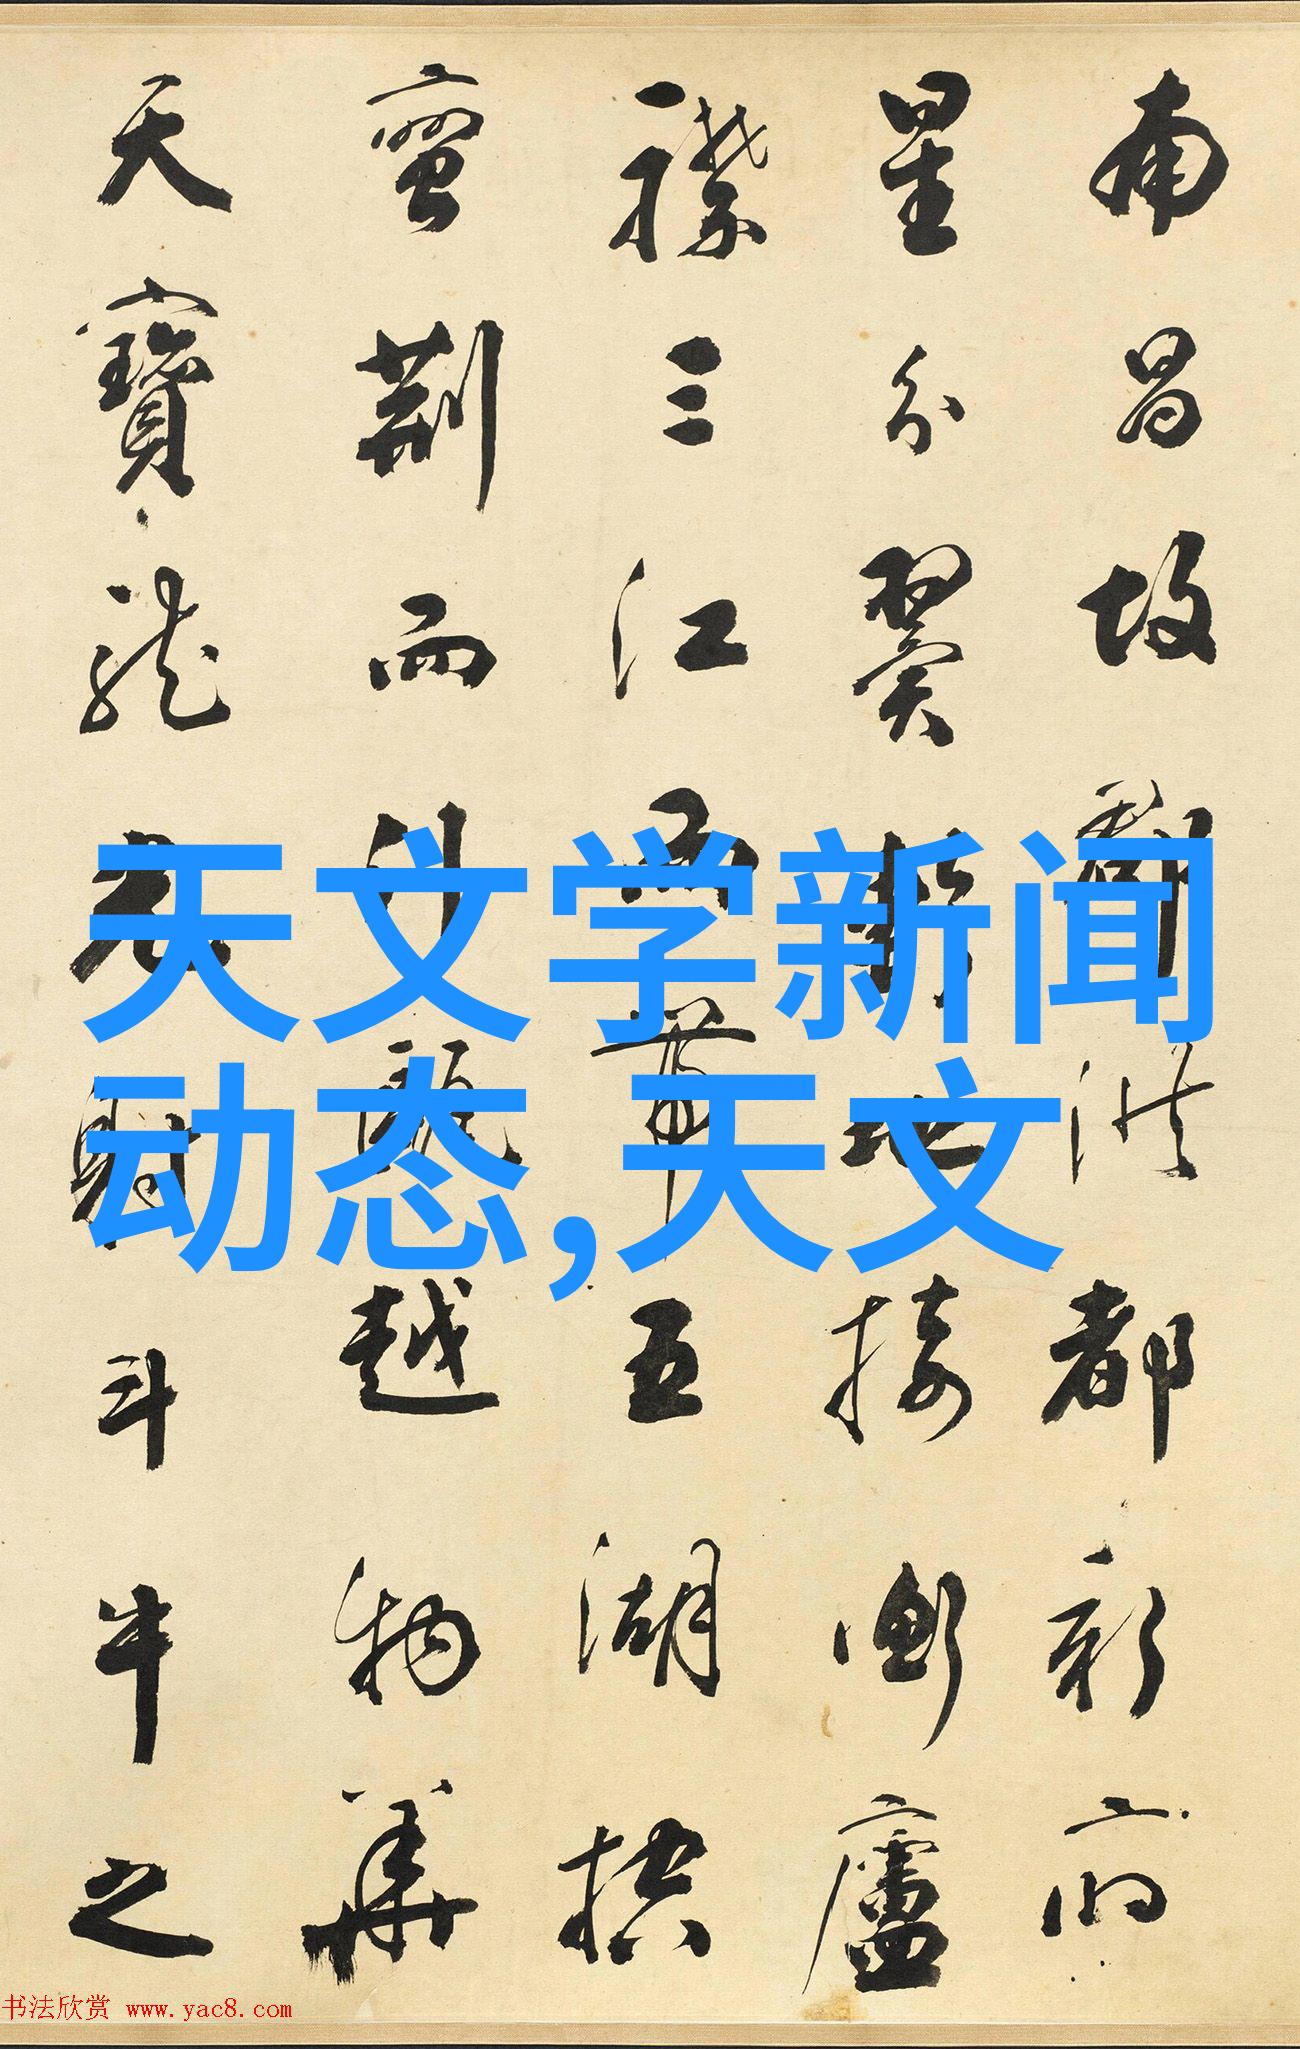 南昌故郡洪都新府
星分翼軫地接衡廬
襟三江而帶五湖控
蠻荊而引甌越物華
天寶龍光射斗牛之
天文学新闻
动态,天文
书法欣赏 www.yac8.com